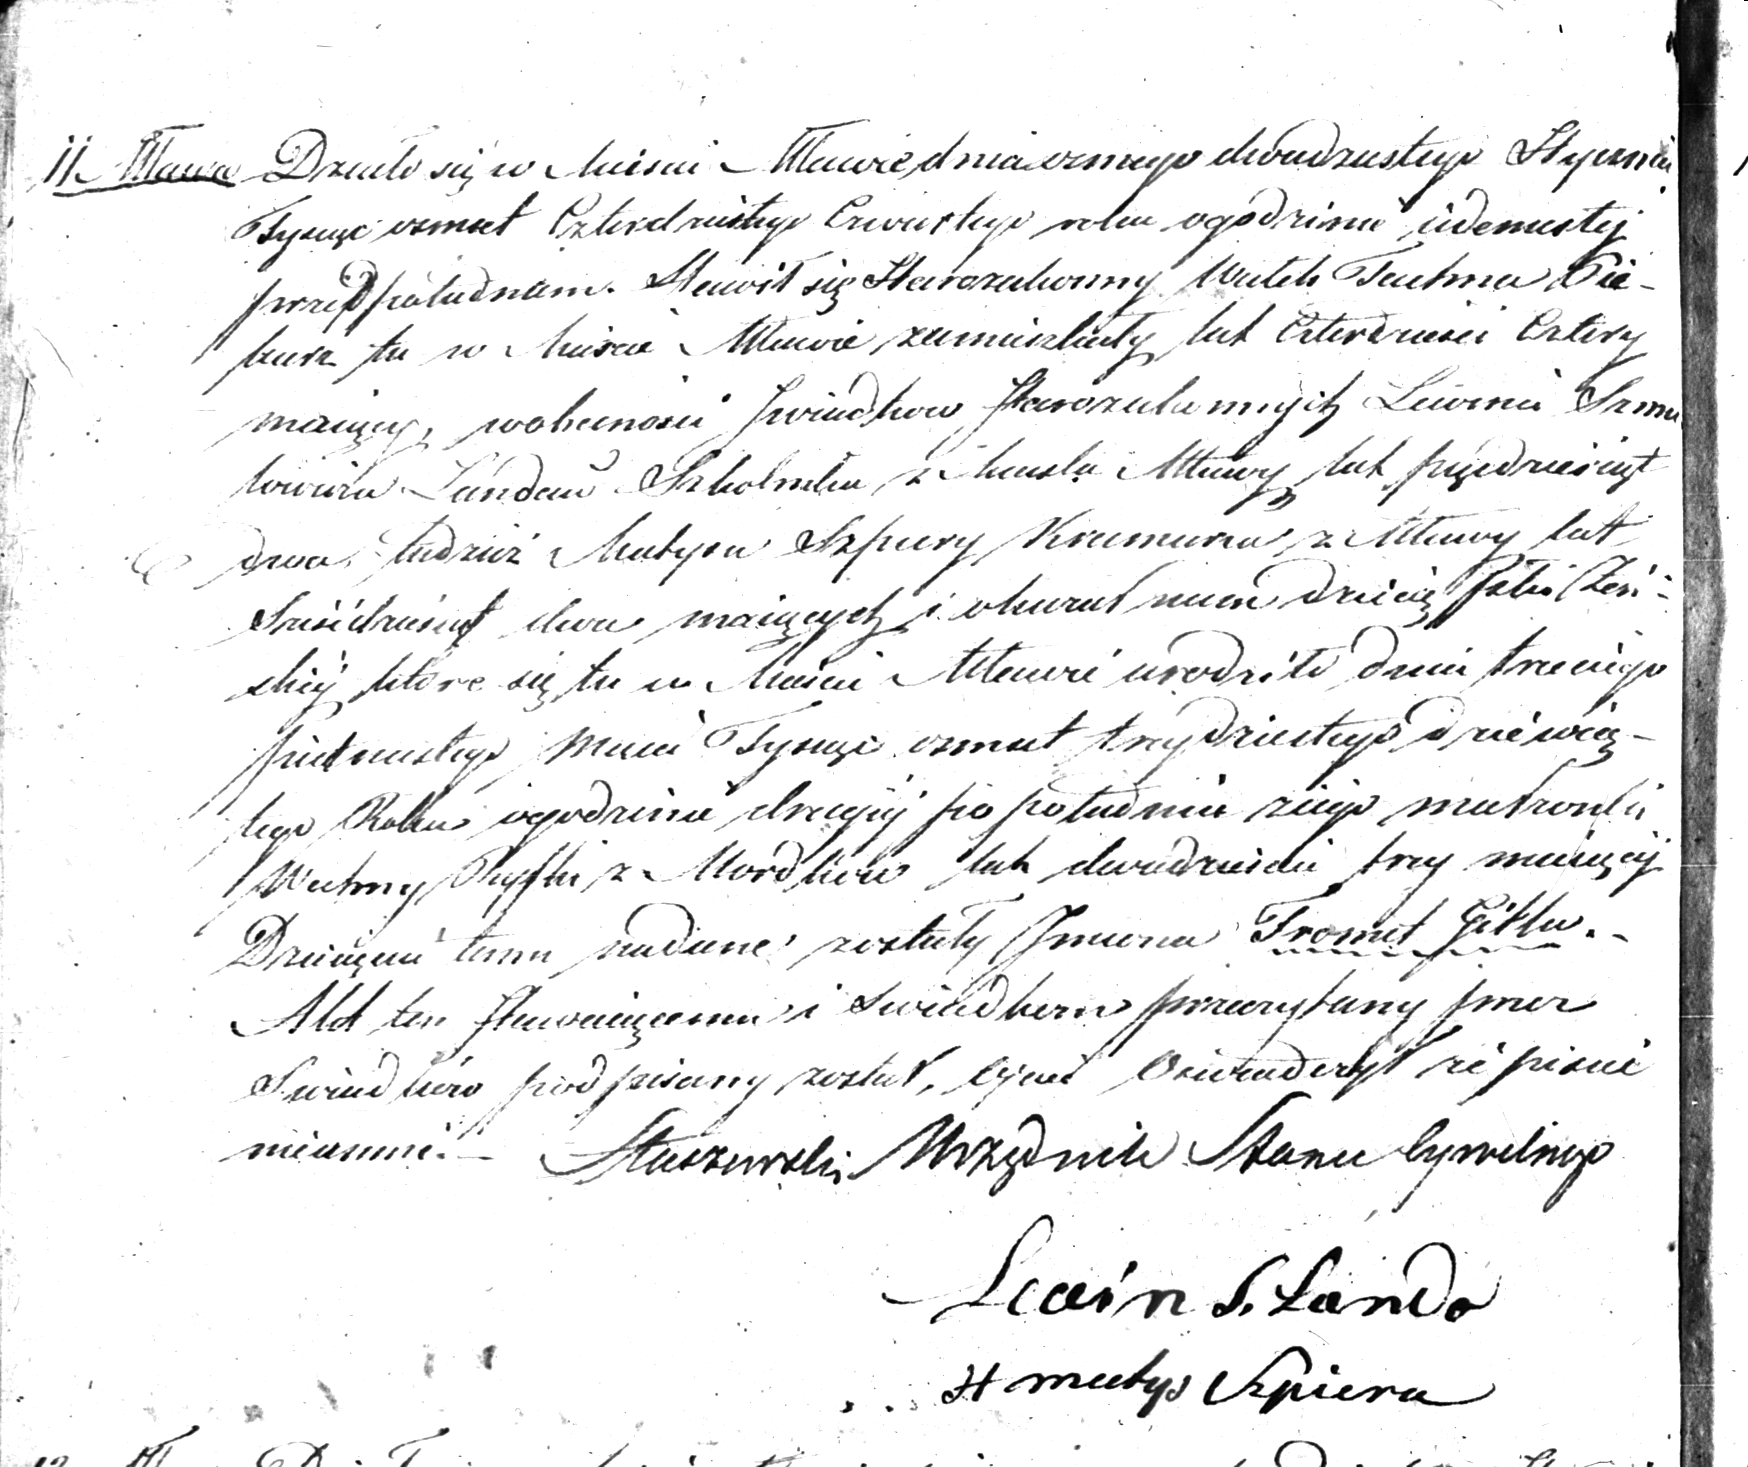 11. Mława Działo się w Mieście Mławie dnia osmego dwudziestego Stycznia
Tysiąc osmset Czterdziestego Czwartego roku o godzinie jedenastej
przed południem. Stawił się Starozakonny Wulek Tuchma Pie-
karz tu w Mieście Mławie zamieszkały lat Czterdzieści Cztery
maiący, w obecności Świadków Starozakonnych Lewina Szmu
lowicza Landau Szkolnika z Miasta Mławy lat pięćdziesiąt
dwa, tudzież Matysa Szpiery Kramarza z Mławy lat
Sześćdziesiąt dwa maiących i okazał nam dziecię płci Żeń-
skiej które się tu w Mieście Mławie urodziło dnia trzeciego
piętnastego Maia Tysiąc osmset trzydziestego dziewią-
tego Roku o godzinie drugiej po południu z iego małżonki
Ryfki z Mordków lat dwadzieścia trzy maiącej
Dziecięciu temu nadane zostały Imiona Fromet Gitla.
Akt ten Stawaiącemu i Świadkom przeczytany przez
Świadków podpisany został, Ojciec Oświadczył że pisać
nieumie. Staszewski Urzędnik Stanu Cywilnego
S. Lando
matys Szpiera